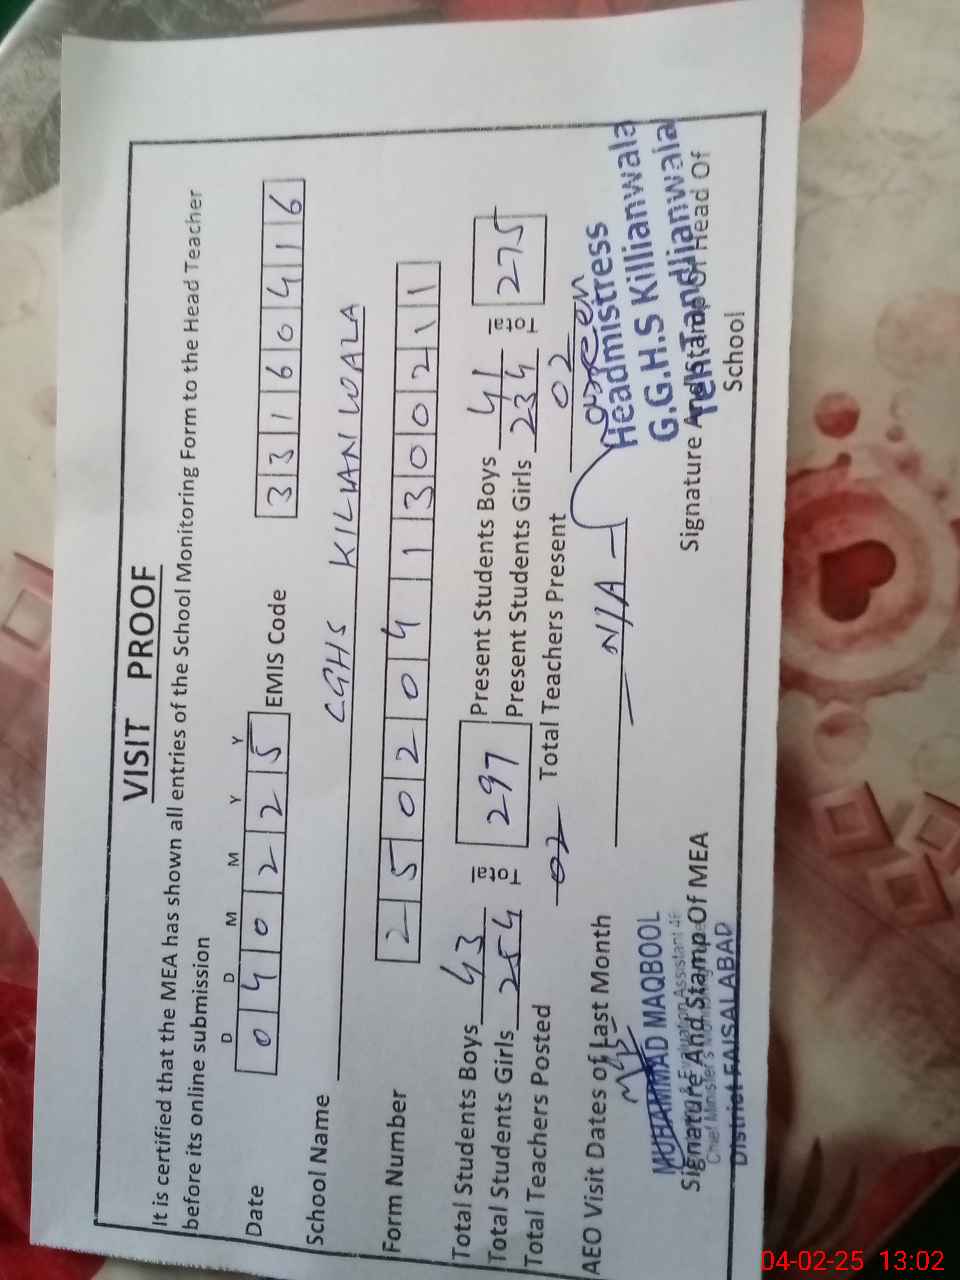 VISIT PROOF
It is certified that the MEA has shown all entries of the School Monitoring Form to the Head Teacher
before its online submission
D D M M Y Y
Date 0 4 0 2 2 5 EMIS Code 3 3 1 6 0 4 1 6
School Name CGHS KILIANIWALA
Form Number 2 5 0 2 0 4 1 1 3 0 0 2 1 1
Total Students Boys 43 Total 297 Present Students Boys 41 Total 275
Total Students Girls 254 Present Students Girls 234
Total Teachers Posted 02 Total Teachers Present 02
AEO Visit Dates of Last Month — N/A —
Headmistress
G.G.H.S Killianwala
Teh Tandlianwala
MUHAMMAD MAQBOOL
Signature And Stamp Of MEA
District FAISALABAD
Signature And Stamp Of Head Of
School
04-02-25 13:02